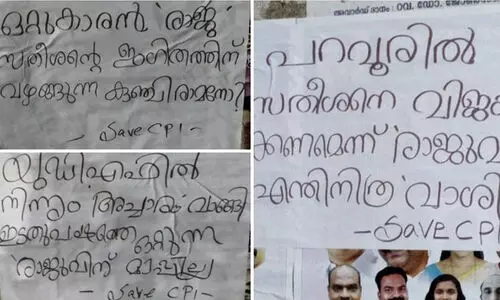 ഒറ്റുകാരൻ 'രാജു'
സതീശൻ്റെ ഇംഗിതത്തിന്
വഴങ്ങുന്ന കുഞ്ഞിരാമനോ?
- Save CPI -
യുഡിഎഫിൽ
നിന്നും അച്ചാരം വാങ്ങി
ഇടതുപക്ഷത്തെ ഒറ്റുന്ന
രാജുവിന് മാപ്പില്ല
- Save CPI -
അവാർഡ് ദാനം : റവ. ഡോ.
പറവൂരിൽ
സതീശനെ വിജയ
ക്കണമെന്ന് 'രാജുവ
എന്തിനിത്ര 'വാശി
- Save CPI